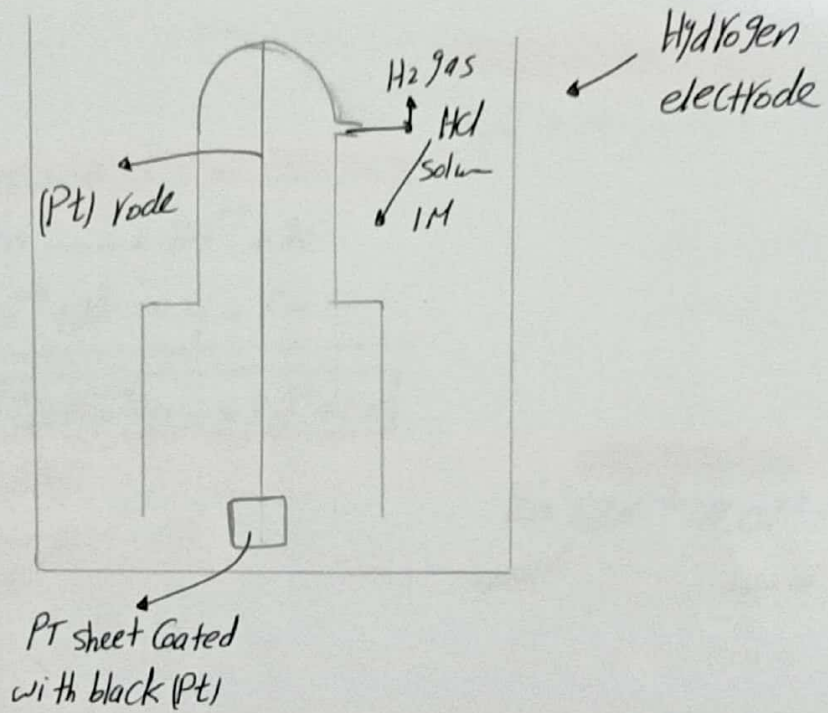 Hydrogen
electrode
H2 gas
HCl
Solun
1M
(Pt) rode
PT sheet Coated
with black (Pt)